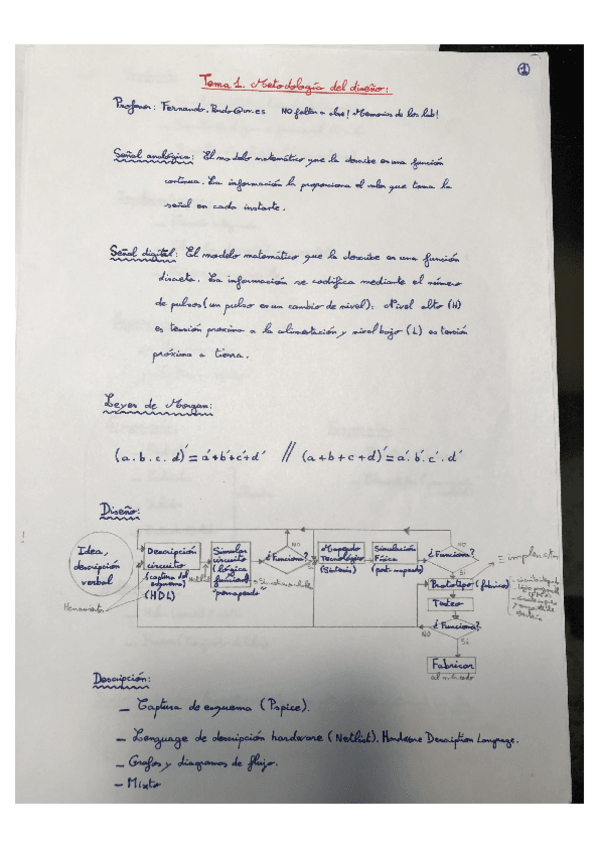 1
Tema 1. Metodología del diseño:
Profesor: Fernando. @ .es NO faltar a clase! Memorias de los lab!
Señal analógica: El modelo matemático que la describe es una función
continua. La información la proporciona el valor que toma la
señal en cada instante.
Señal digital: El modelo matemático que la describe es una función
discreta. La información se codifica mediante el número
de pulsos (un pulso es un cambio de nivel): Nivel alto (H)
es tensión próxima a la alimentación y nivel bajo (L) es tensión
próxima a tierra.
Leyes de Morgan:
(a.b.c.d)' = a'+b'+c'+d' // (a+b+c+d)' = a'.b'.c'.d'
Diseño:
Idea,
descripción
verbal
Descripción
circuito
(captura del
esquema)
(HDL)
Netlist
Herramientas
Simular
circuito
(lógica
funcional)
"premapeado"
¿Funciona?
NO
Si
Mapeado
Tecnológico
(Síntesis)
Simulación
Física
(post-mapeado)
¿Funciona?
NO
Si
Prototipo (fabricar)
Testeo
¿Funciona?
NO
Si
Fabricar
al mercado
Descripción:
- Captura de esquema (Pspice).
- Lenguage de descripción hardware (Netlist). Hardware Description Language.
- Grafos y diagramas de flujo.
- Mixto